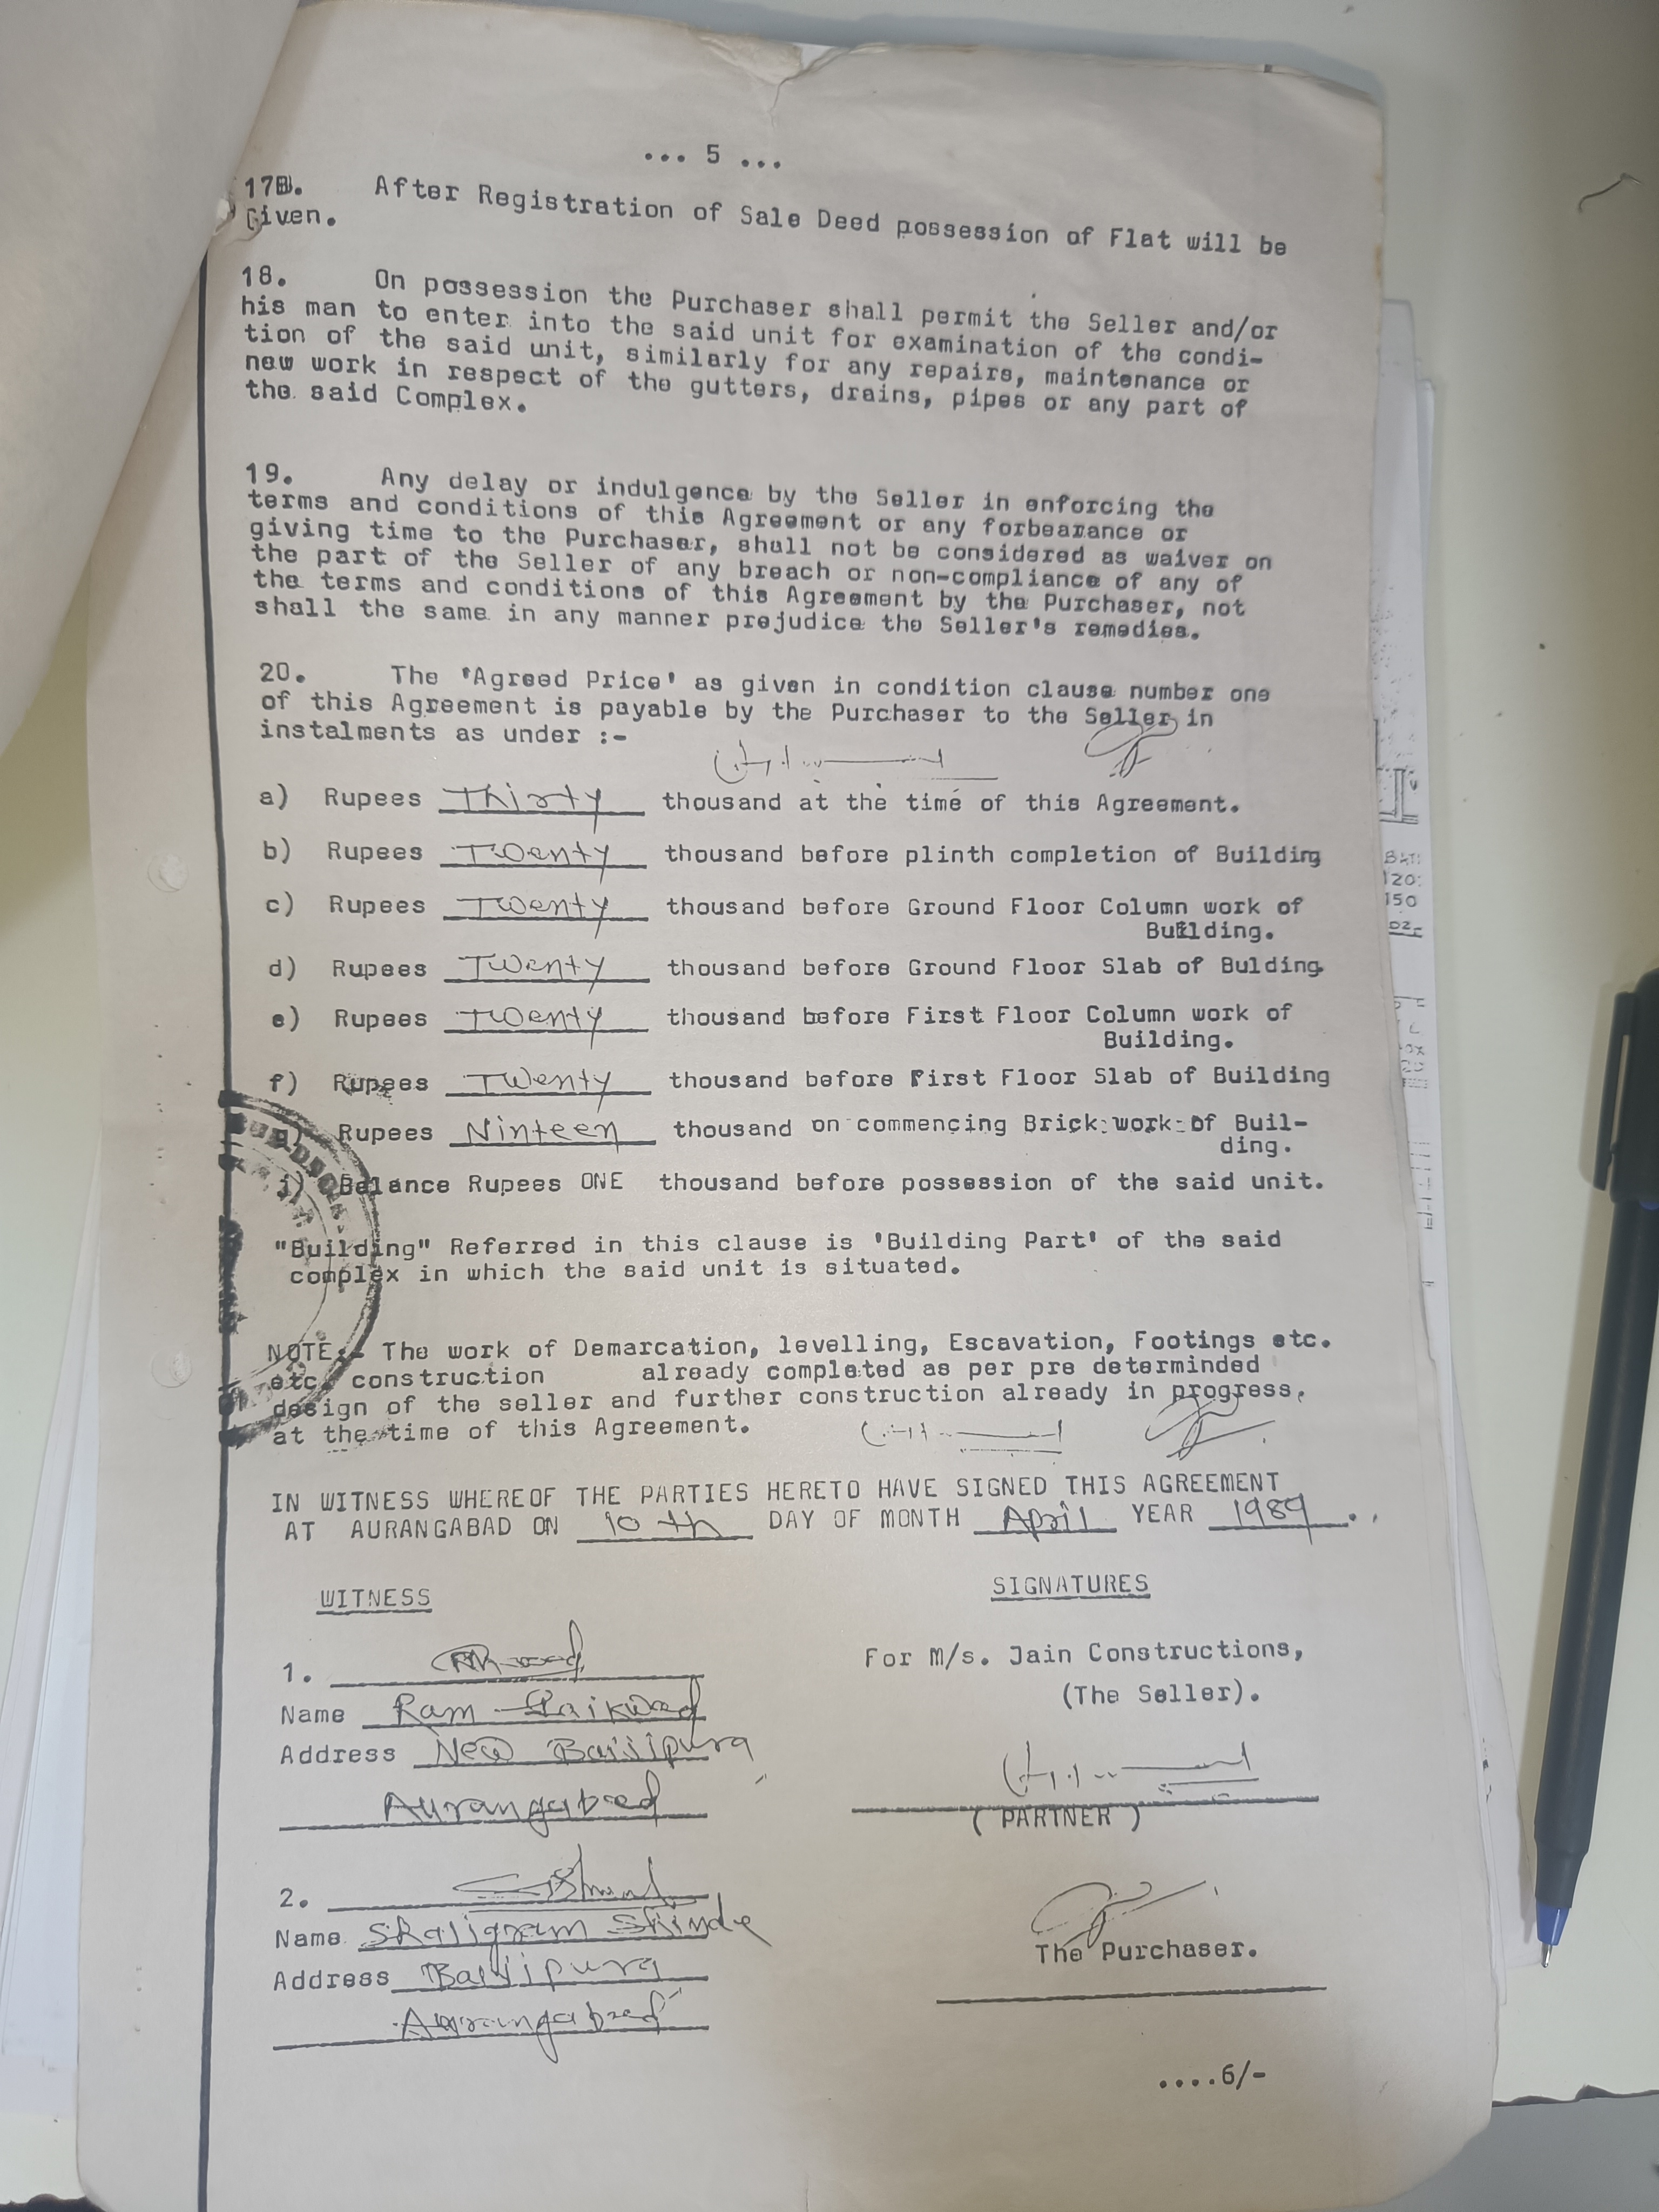 ... 5 ...
17B. After Registration of Sale Deed possession of Flat will be
Given.
18. On possession the Purchaser shall permit the Seller and/or
his man to enter into the said unit for examination of the condi-
tion of the said unit, similarly for any repairs, maintenance or
new work in respect of the gutters, drains, pipes or any part of
the said Complex.
19. Any delay or indulgence by the Seller in enforcing the
terms and conditions of this Agreement or any forbearance or
giving time to the Purchaser, shall not be considered as waiver on
the part of the Seller of any breach or non-compliance of any of
the terms and conditions of this Agreement by the Purchaser, not
shall the same in any manner prejudice the Seller's remedies.
20. The 'Agreed Price' as given in condition clause number one
of this Agreement is payable by the Purchaser to the Seller in
instalments as under :-
a) Rupees Thirty thousand at the time of this Agreement.
b) Rupees Twenty thousand before plinth completion of Building
c) Rupees Twenty thousand before Ground Floor Column work of
Building.
d) Rupees Twenty thousand before Ground Floor Slab of Bulding.
e) Rupees Twenty thousand before First Floor Column work of
Building.
f) Rupees Twenty thousand before First Floor Slab of Building
g) Rupees Ninteen thousand on commencing Brick work of Buil-
ding.
Balance Rupees ONE thousand before possession of the said unit.
"Building" Referred in this clause is 'Building Part' of the said
complex in which the said unit is situated.
NOTE:- The work of Demarcation, levelling, Escavation, Footings etc.
etc. construction already completed as per pre determinded
design of the seller and further construction already in progress,
at the time of this Agreement.
IN WITNESS WHEREOF THE PARTIES HERETO HAVE SIGNED THIS AGREEMENT
AT AURANGABAD ON 10 th DAY OF MONTH April YEAR 1989.
WITNESS
SIGNATURES
1.
Name Ram Gaikwad
Address New Baijipura
Aurangabad
For M/s. Jain Constructions,
(The Seller).
( PARTNER )
2.
Name Shaligram Shinde
Address Baijipura
Aurangabad
The Purchaser.
....6/-